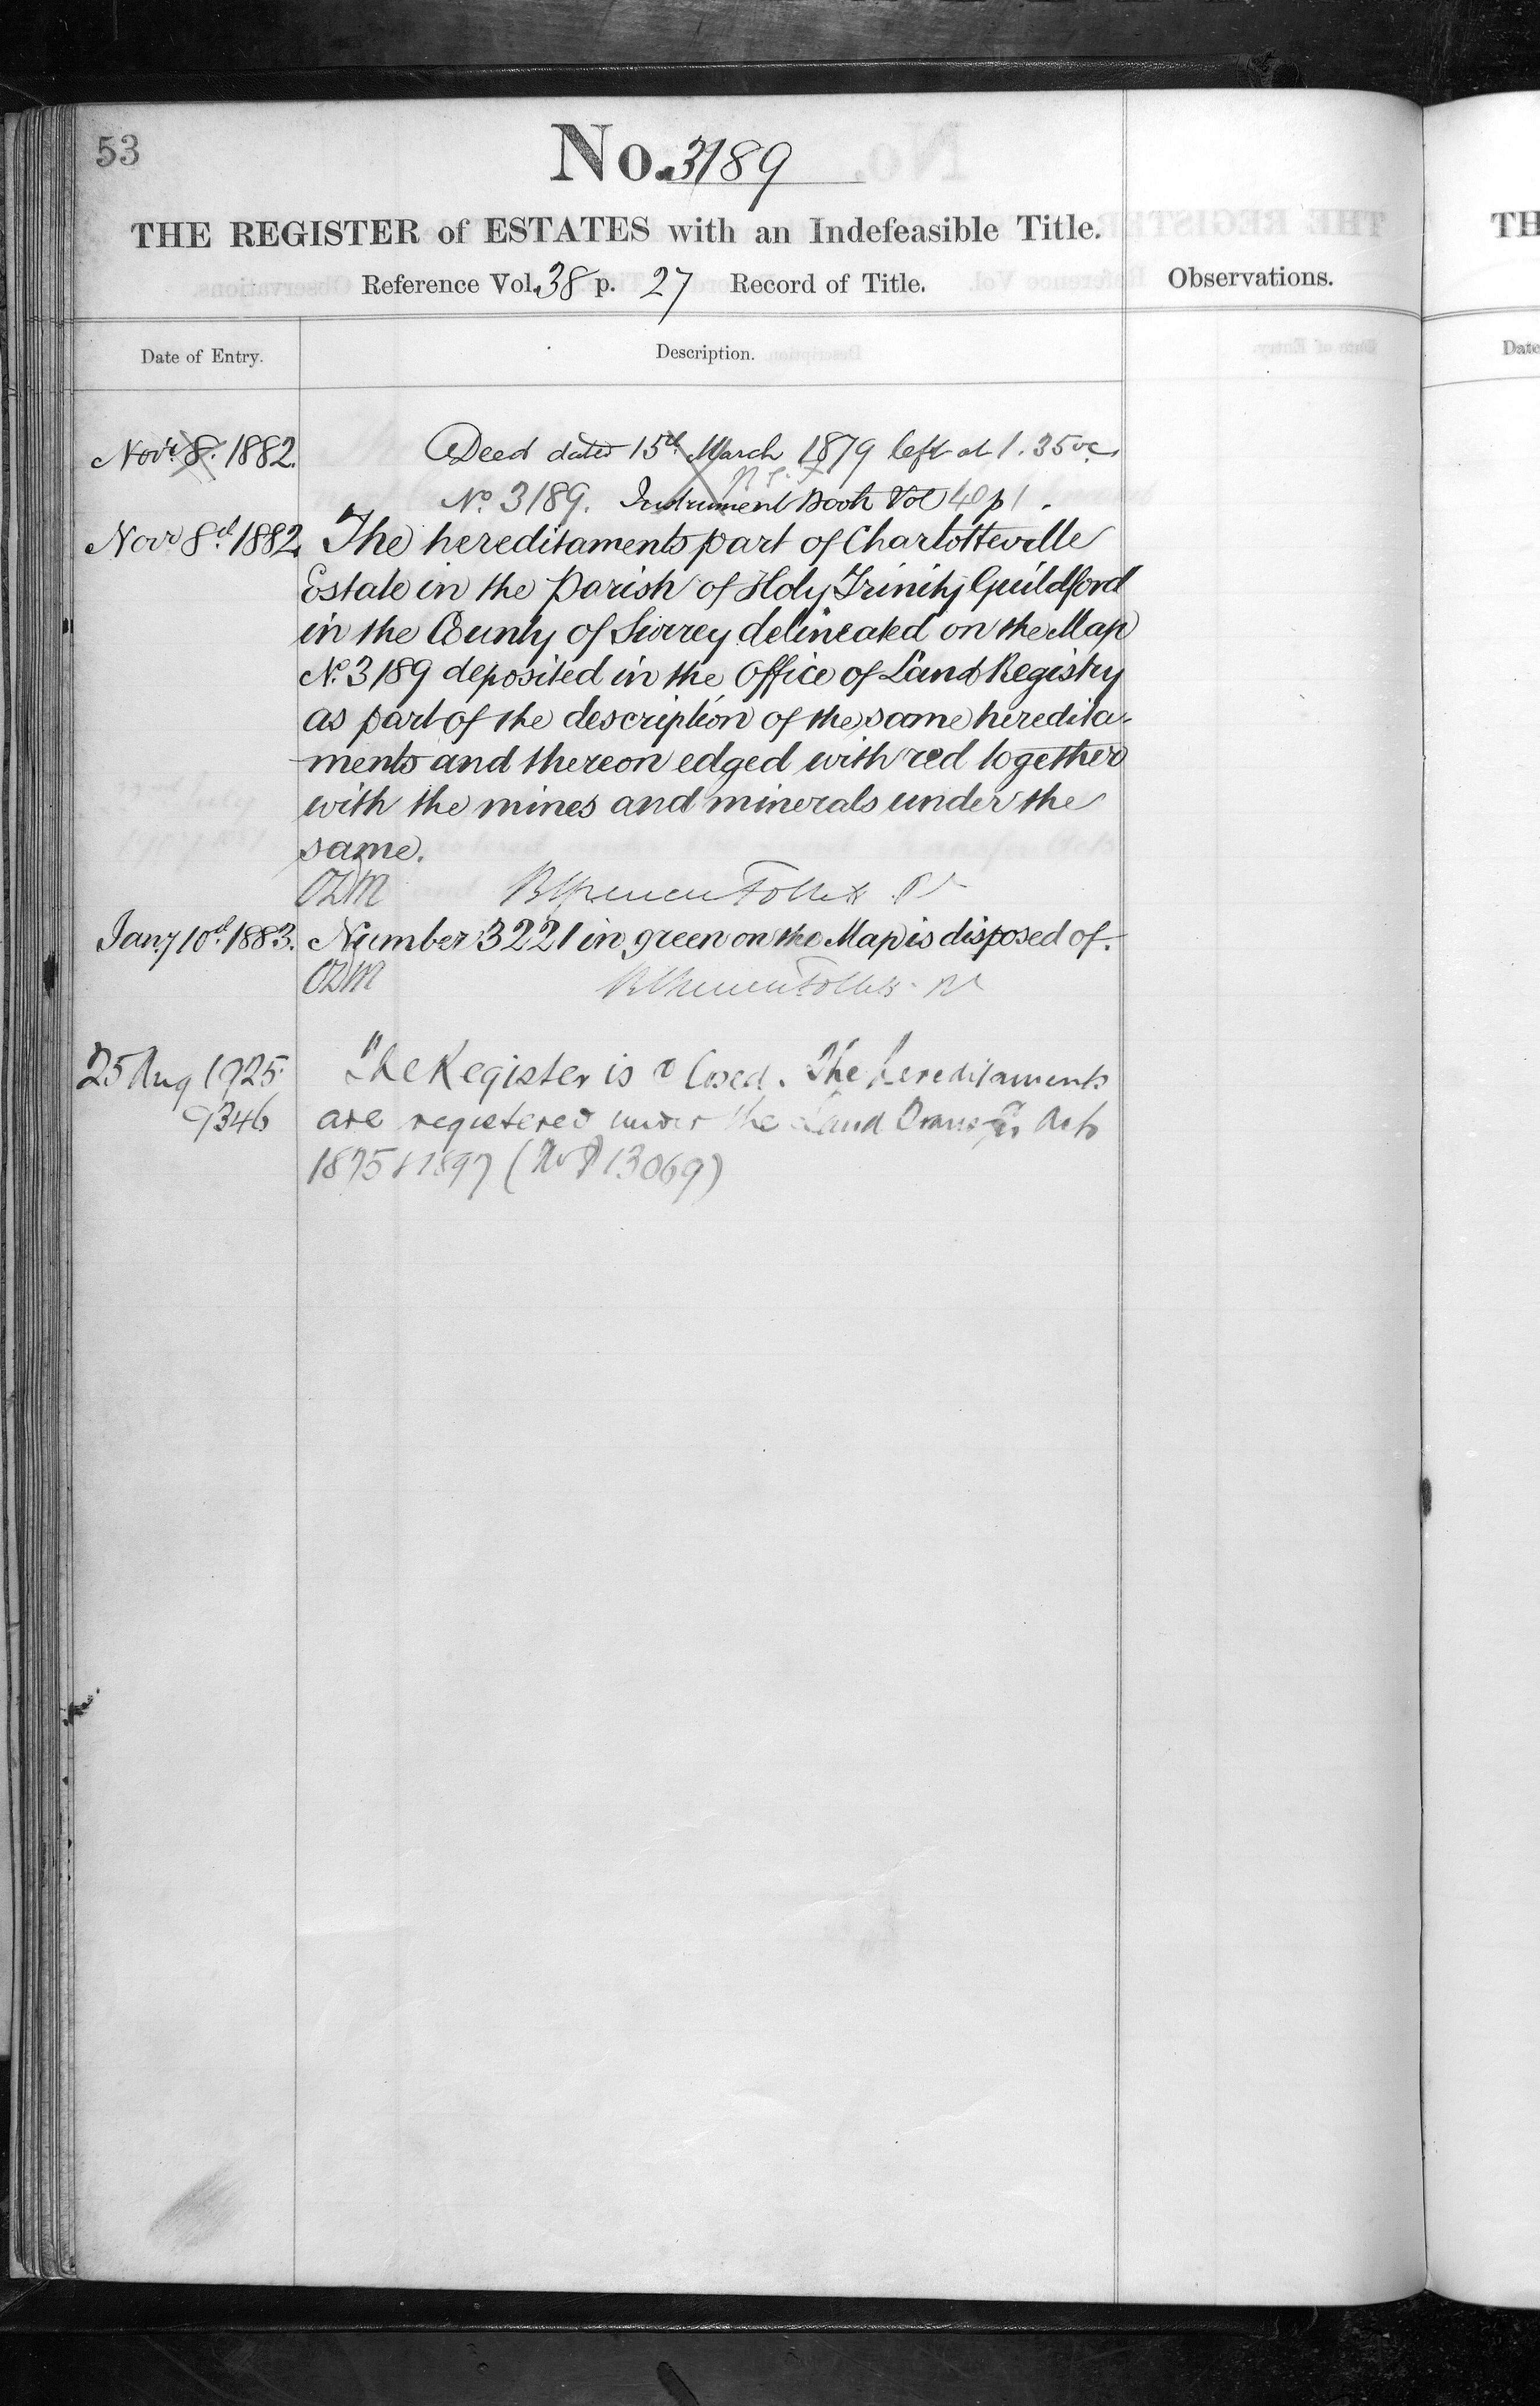 53
No. 3189
THE REGISTER of ESTATES with an Indefeasible Title.
Reference Vol. 38 p. 27 Record of Title.
Observations.
Date of Entry.
Description.
Novr. 8. 1882. Deed dated 15th March 1879 left at 1.35
No. 3189. Instrument Book Vol 40 p 1.
Novr 8th 1882. The hereditaments part of Charlotteville
Estate in the Parish of Holy Trinity Guildford
in the County of Surrey delineated on the Map
No. 3189 deposited in the Office of Land Registry
as part of the description of the same heredita-
ments and thereon edged with red together
with the mines and minerals under the
same.
Jany 10th 1883. Number 3221 in green on the Map is disposed of.
25 Aug 1925 The Register is closed. The hereditaments
9346 are registered under the Land Transfer Acts
1875 & 1897 (No P 13069)
TH
Date